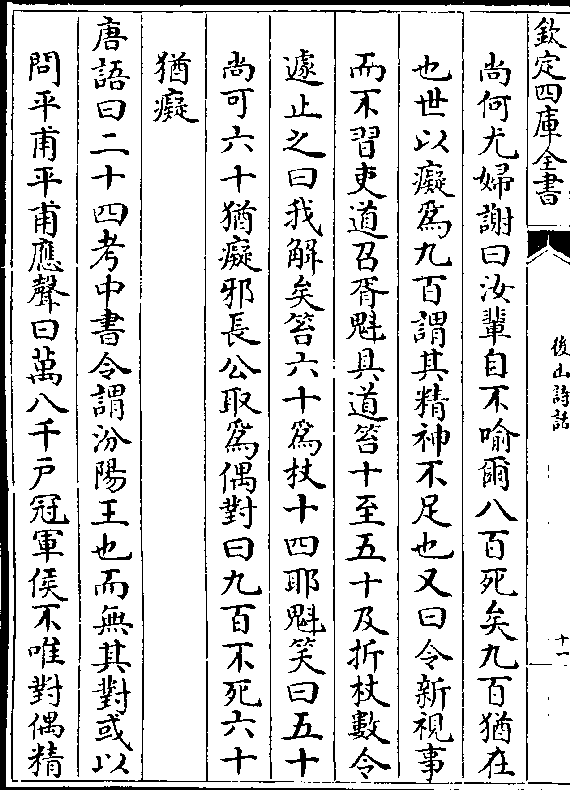 欽定四庫全書
後山詩話
十一
尚何尤婦謝曰汝輩自不喻爾八百死矣九百猶在
也世以癡為九百謂其精神不足也又曰令新視事
而不習吏道召胥魁具道笞十至五十及折杖數令
遽止之曰我解矣笞六十為杖十四耶魁笑曰五十
尚可六十猶癡邪長公取為偶對曰九百不死六十
猶癡
唐語曰二十四考中書令謂汾陽王也而無其對或以
問平甫平甫應聲曰萬八千戶冠軍侯不唯對偶精